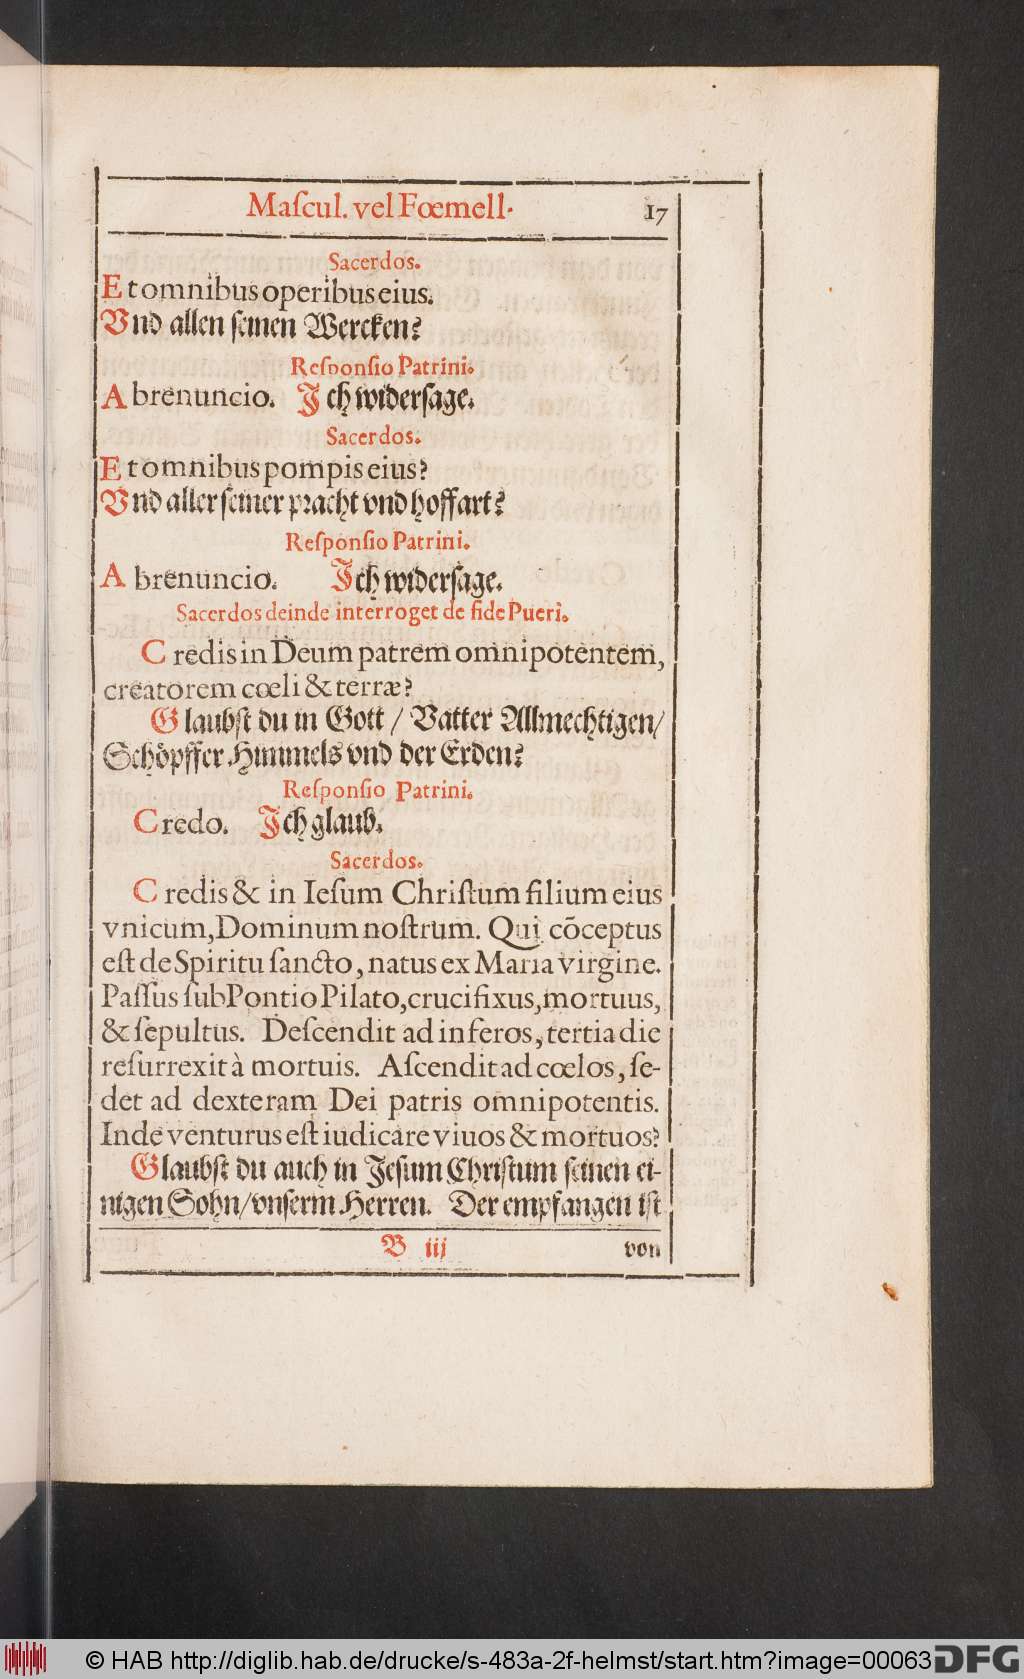 Maſcul. vel Fœmell.
17
Sacerdos.
Et omnibus operibus eius.
Vnd allen ſeinen Wercken?
Reſponſio Patrini.
Abrenuncio. Ich widerſage.
Sacerdos.
Et omnibus pompis eius?
Vnd aller ſeiner pracht vnd hoffart?
Reſponſio Patrini.
Abrenuncio. Ich widerſage.
Sacerdos deinde interroget de fide Pueri.
Credis in Deum patrem omnipotentem,
creatorem cœli & terræ?
Glaubſt du in Gott / Vatter Allmechtigen/
Schöpffer Himmels vnd der Erden?
Reſponſio Patrini.
Credo. Ich glaub.
Sacerdos.
Credis & in Ieſum Chriſtum filium eius
vnicum, Dominum noſtrum. Qui cõceptus
eſt de Spiritu ſancto, natus ex Maria virgine.
Paſſus ſub Pontio Pilato, crucifixus, mortuus,
& ſepultus. Deſcendit ad inferos, tertia die
reſurrexit à mortuis. Aſcendit ad cœlos, ſe-
det ad dexteram Dei patris omnipotentis.
Inde venturus eſt iudicare viuos & mortuos?
Glaubſt du auch in Jeſum Chriſtum ſeinen ei-
nigen Sohn/vnſerm Herren. Der empfangen iſt
B iij
von
© HAB http://diglib.hab.de/drucke/s-483a-2f-helmst/start.htm?image=00063
DFG